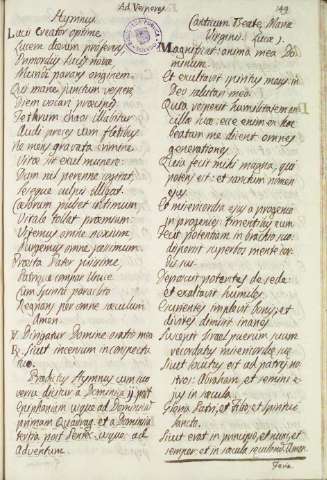 Ad Vesperas
149
Hymnus
Lucis Creator optime
Lucem dierum proferens
Primordijs Lucis novæ
Mundi parans originem.
Qui mane junctum vesperi
Diem vocari præcipis
Tetrum chaos illabitur
Audi preces cum fletibus
Ne mens gravata crimine
Vitæ sit exul munere
Dum nil perenne cogitat
Seseque culpis illigat.
Cælorum pulset intimum
Vitale tollat præmium
Vitemus omne noxium
Purgemus omne pessimum.
Præsta Pater piissime
Patrique compar Unice
Cum Spiritu paraclito
Regnans per omne sæculum
Amen.
V. Dirigatur Domine oratio mea
R. Sicut incensum in conspectu
tuo.
Prædictus Hymnus cum suo
versu dicitur a Dominica ij post
Epiphaniam usque ad Dominicam
primam Quadrag. et a Dominica
tertia post Pentec. usque ad
Adventum.
Canticum Beatæ Mariæ
Virginis. Lucæ 1.
Magnificat: anima mea Do-
minum.
Et exultavit spiritus meus: in
Deo salutari meo.
Quia respexit humilitatem an-
cillæ suæ: ecce enim ex hoc
beatam me dicent omnes
generationes.
Quia fecit mihi magna, qui
potens est: et sanctum nomen
ejus.
Et misericordia ejus a progenie
in progenies: timentibus eum
Fecit potentiam in brachio suo:
dispersit superbos mente cor-
dis sui.
Deposuit potentes de sede:
et exaltavit humiles
Esurientes implevit bonis: et
divites dimisit inanes
Suscepit Israel puerum suum:
recordatus misericordiæ suæ
Sicut locutus est ad patres nos-
tros: Abraham, et semini e-
jus in sæcula.
Gloria Patri, et Filio, et Spiritui
Sancto.
Sicut erat in principio, et nunc, et
semper: et in sæcula sæculorum. Amen.
Feria